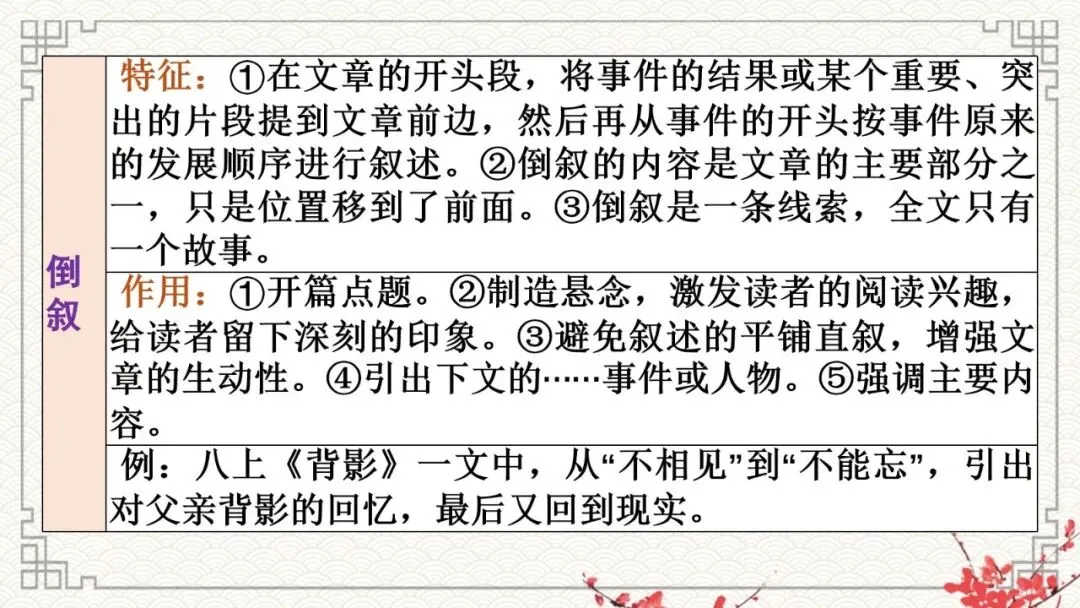 倒
叙
特征：①在文章的开头段，将事件的结果或某个重要、突
出的片段提到文章前边，然后再从事件的开头按事件原来
的发展顺序进行叙述。②倒叙的内容是文章的主要部分之
一，只是位置移到了前面。③倒叙是一条线索，全文只有
一个故事。
作用：①开篇点题。②制造悬念，激发读者的阅读兴趣，
给读者留下深刻的印象。③避免叙述的平铺直叙，增强文
章的生动性。④引出下文的……事件或人物。⑤强调主要内
容。
例：八上《背影》一文中，从“不相见”到“不能忘”，引出
对父亲背影的回忆，最后又回到现实。